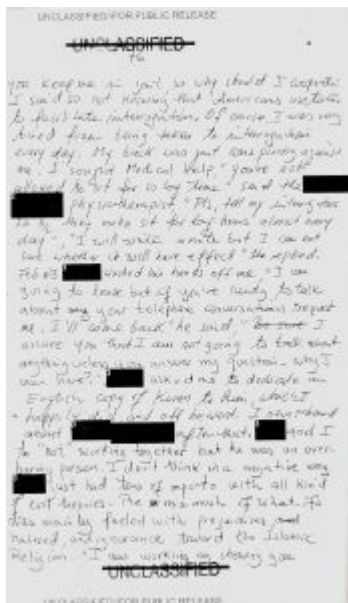 UNCLASSIFIED//FOR PUBLIC RELEASE
UNCLASSIFIED
76
you keep me in jail so why should I cooperate
I said so not knowing that Americans use torture
to facilitate interrogation. Of course I was very
tired from being taken to interrogation
every day. My back was just conspiring against
me. I sought Medical help "you're not
allowed to sit for so long time" said the
physiotherapist "Pls, tell my interrogators
so, they make sit for long hours almost every
day" "I will write a note but I am not
sure whether it will have effect" replied.
Feb 03 washed his hands off me "I am
going to leave but if you're ready to talk
about my your telephone conversations request
me, I'll come back" he said, " I
assure you that I am not going to talk about
anything unless you answer my question, why I
am here?" asked me to dedicate an
English copy of Koran to him, which I
happily did and off he went. I never heard
about after that. and I
"not" working together but he was an
person. I don't think in a negative way
just had tons of reports with all kind
of evil theories. The of What-If's
was mainly fueled with prejudices and
hatred, and ignorance toward the Islamic
Religion. "I am working on showing you
UNCLASSIFIED
UNCLASSIFIED//FOR PUBLIC RELEASE